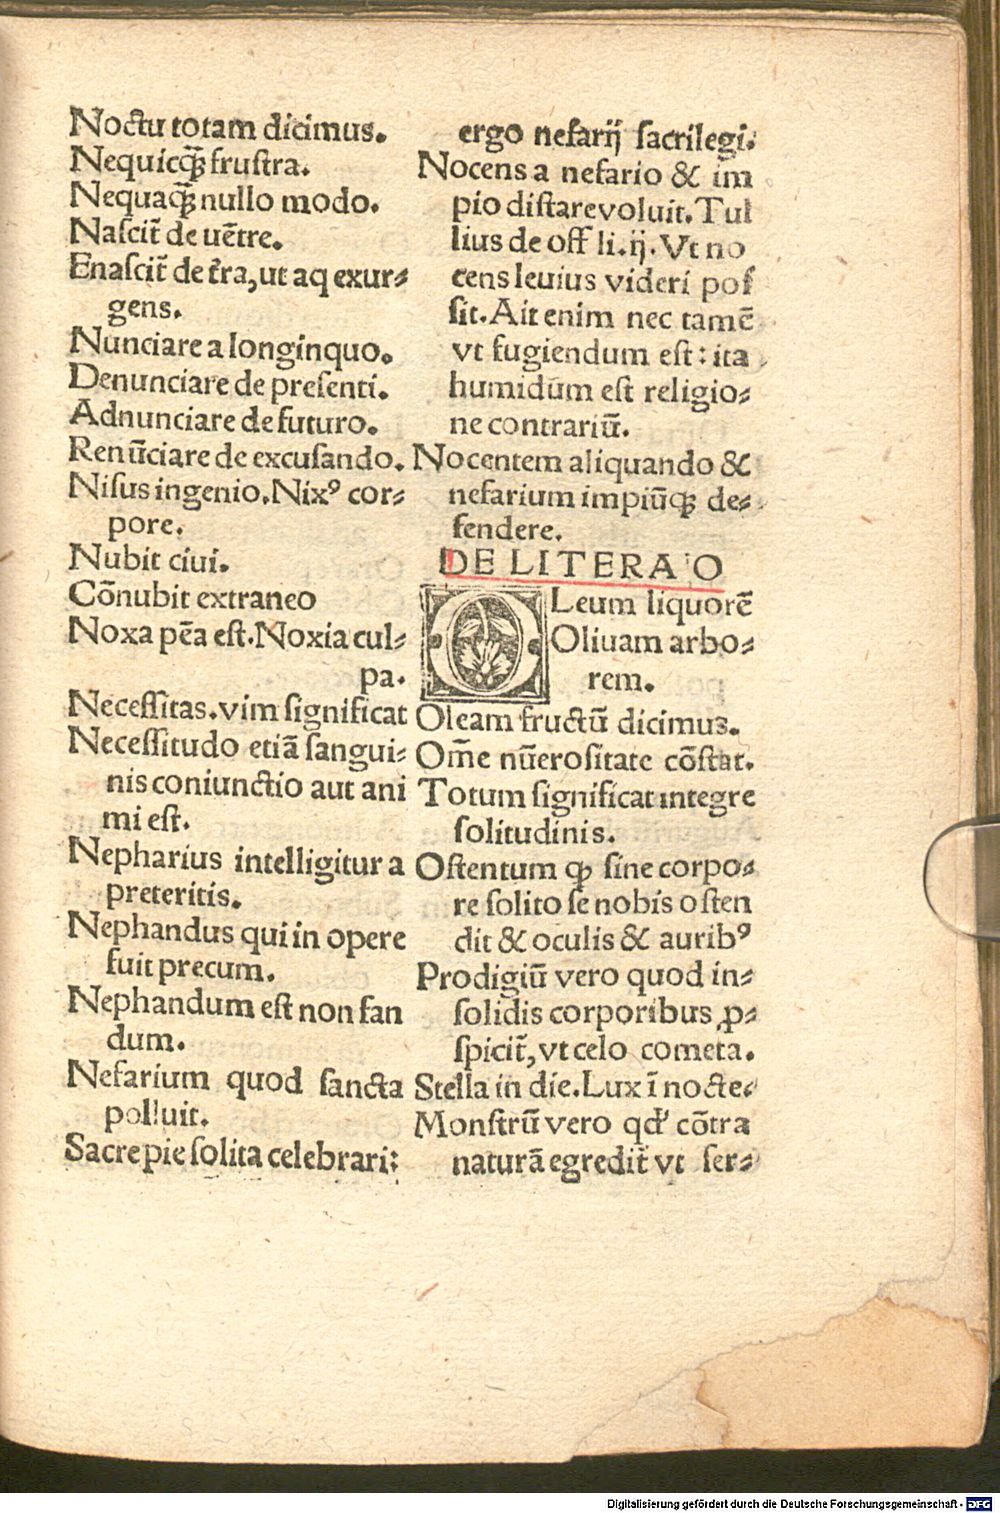 Noctu totam dicimus.
Nequicq̃ꝫ frustra.
Nequaq̃ꝫ nullo modo.
Naſcit̃ de uẽtre.
Enaſcit̃ de t̃ra, ut aq exur⸗
gens.
Nunciare a longinquo.
Denunciare de preſenti.
Adnunciare de futuro.
Renũciare de excuſando.
Niſus ingenio. Nixꝰ cor⸗
pore.
Nubit ciui.
Cõnubit extraneo
Noxa pẽa eſt. Noxia cul⸗
pa.
Neceſſitas. vim ſignificat
Neceſſitudo etiã ſangui⸗
nis coniunctio aut ani
mi eſt.
Nepharius intelligitur a
preteritis.
Nephandus qui in opere
fuit precum.
Nephandum eſt non fan
dum.
Nefarium quod ſancta
polluit.
Sacre pie ſolita celebrari:
ergo nefarij ſacrilegi.
Nocens a nefario & im
pio diſtare voluit. Tul
lius de off li. ij. Vt no
cens leuius videri poſ
ſit. Ait enim nec tamẽ
vt fugiendum eſt: ita
humidũm eſt religio⸗
ne contrariũ.
Nocentem aliquando &
nefarium impiũqꝫ de⸗
fendere.
DE LITERA O
OLeum liquorẽ
Oliuam arbo⸗
rem.
Oleam fructũ dicimus.
Om̃e nũeroſitate cõſtat.
Totum ſignificat integre
ſolitudinis.
Oſtentum ꝙ ſine corpo⸗
re ſolito ſe nobis oſten
dit & oculis & auribꝰ
Prodigiũ vero quod in⸗
ſolidis corporibus ꝓ⸗
ſpicit̃, vt celo cometa.
Stella in die. Lux ĩ nocte⸗
Monſtrũ vero qđ cõtra
naturã egredit̃ vt ſer⸗
Digitalisierung gefördert durch die Deutsche Forschungsgemeinschaft - DFG